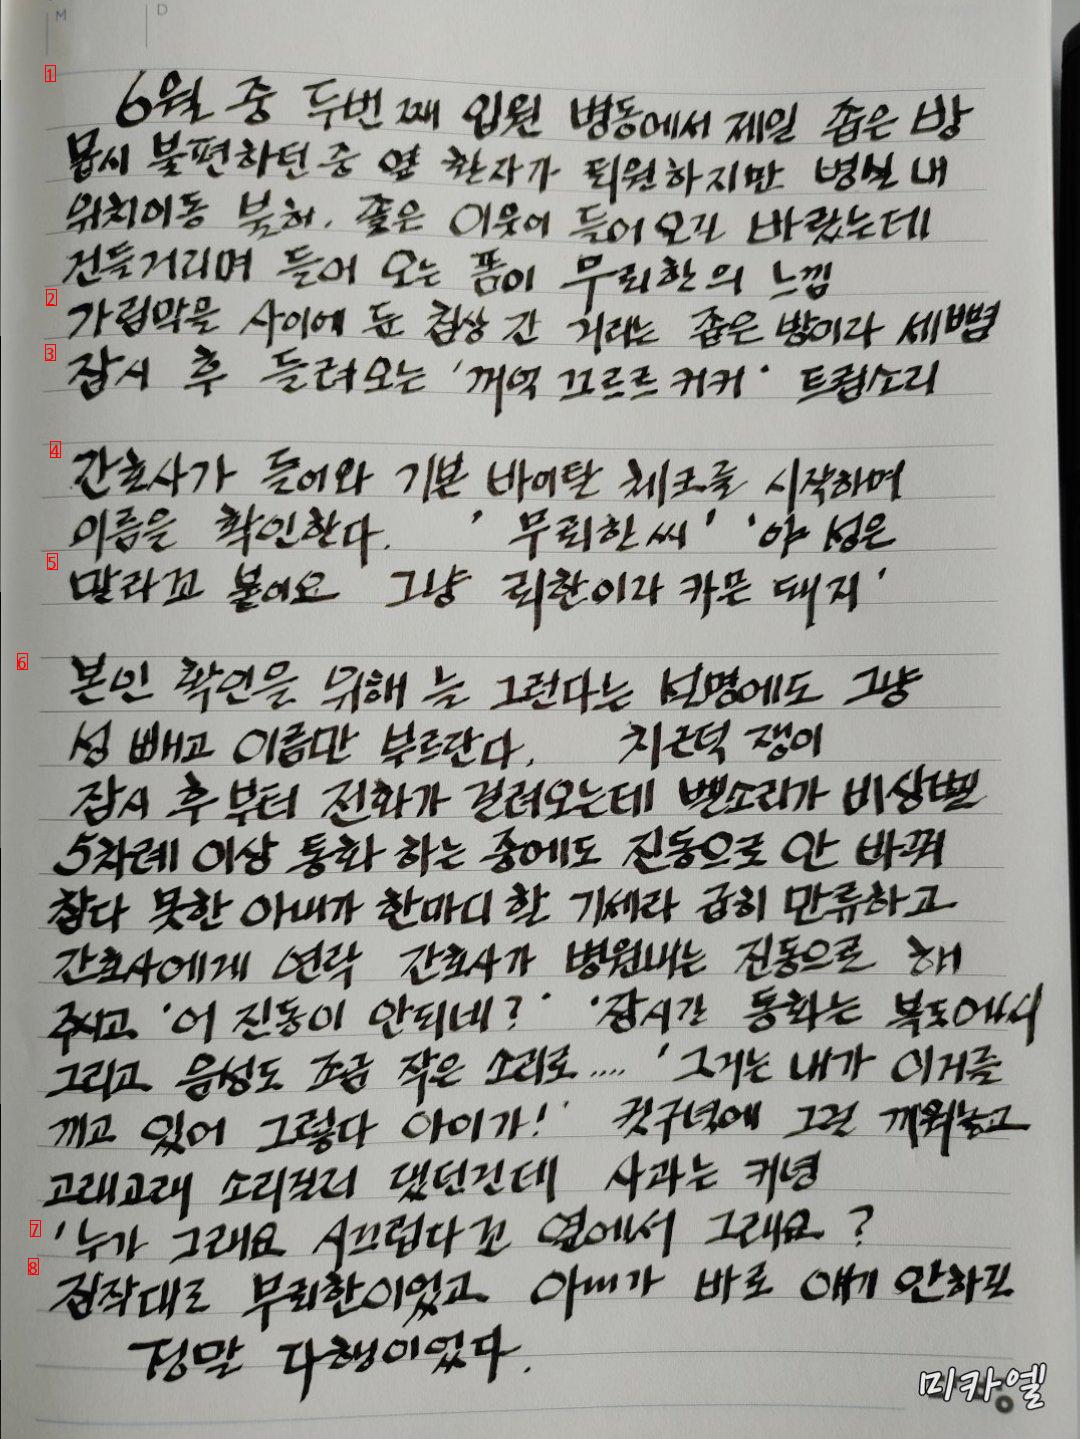 M D
1
6월 중 두번째 입원 병동에서 제일 좁은 방
몹시 불편하던 중 옆 환자가 퇴원하지만 병실 내
위치이동 불허. 좋은 이웃이 들어오길 바랐는데
건들거리며 들어 오는 폼이 무뢰한의 느낌
2
가림막을 사이에 둔 침상 간 거리는 좁은 방이라 세뼘
3
잠시 후 들려오는 '꺼억 끄르르 커커' 트림소리
4
간호사가 들어와 기본 바이탈 체크를 시작하며
이름을 확인한다. '무뢰한씨' '아 성은
5
말라꼬 붙이요 그냥 뢰한이라 카믄 돼지'
6
본인 확인을 위해 늘 그런다는 설명에도 그냥
성 빼고 이름만 부르란다. 치근덕 쟁이
잠시 후부터 전화가 걸려오는데 벨소리가 비상벨
5차례 이상 통화 하는 중에도 진동으로 안 바꿔
참다 못한 아내가 한마디 할 기세라 급히 만류하고
간호사에게 연락 간호사가 병원내는 진동으로 해
주시고 '어 진동이 안되네?' '잠시간 통화는 복도에서
그리고 음성도 조금 작은 소리로.... '그거는 내가 이거를
끼고 있어 그렇다 아이가!' 귓구녁에 그걸 끼워놓고
고래고래 소리질러 댔던건데 사과는 커녕
7
'누가 그래요 시끄럽다꼬 옆에서 그래요?
8
짐작대로 무뢰한이었고 아내가 바로 얘기 안하고
정말 다행이었다.
미카엘